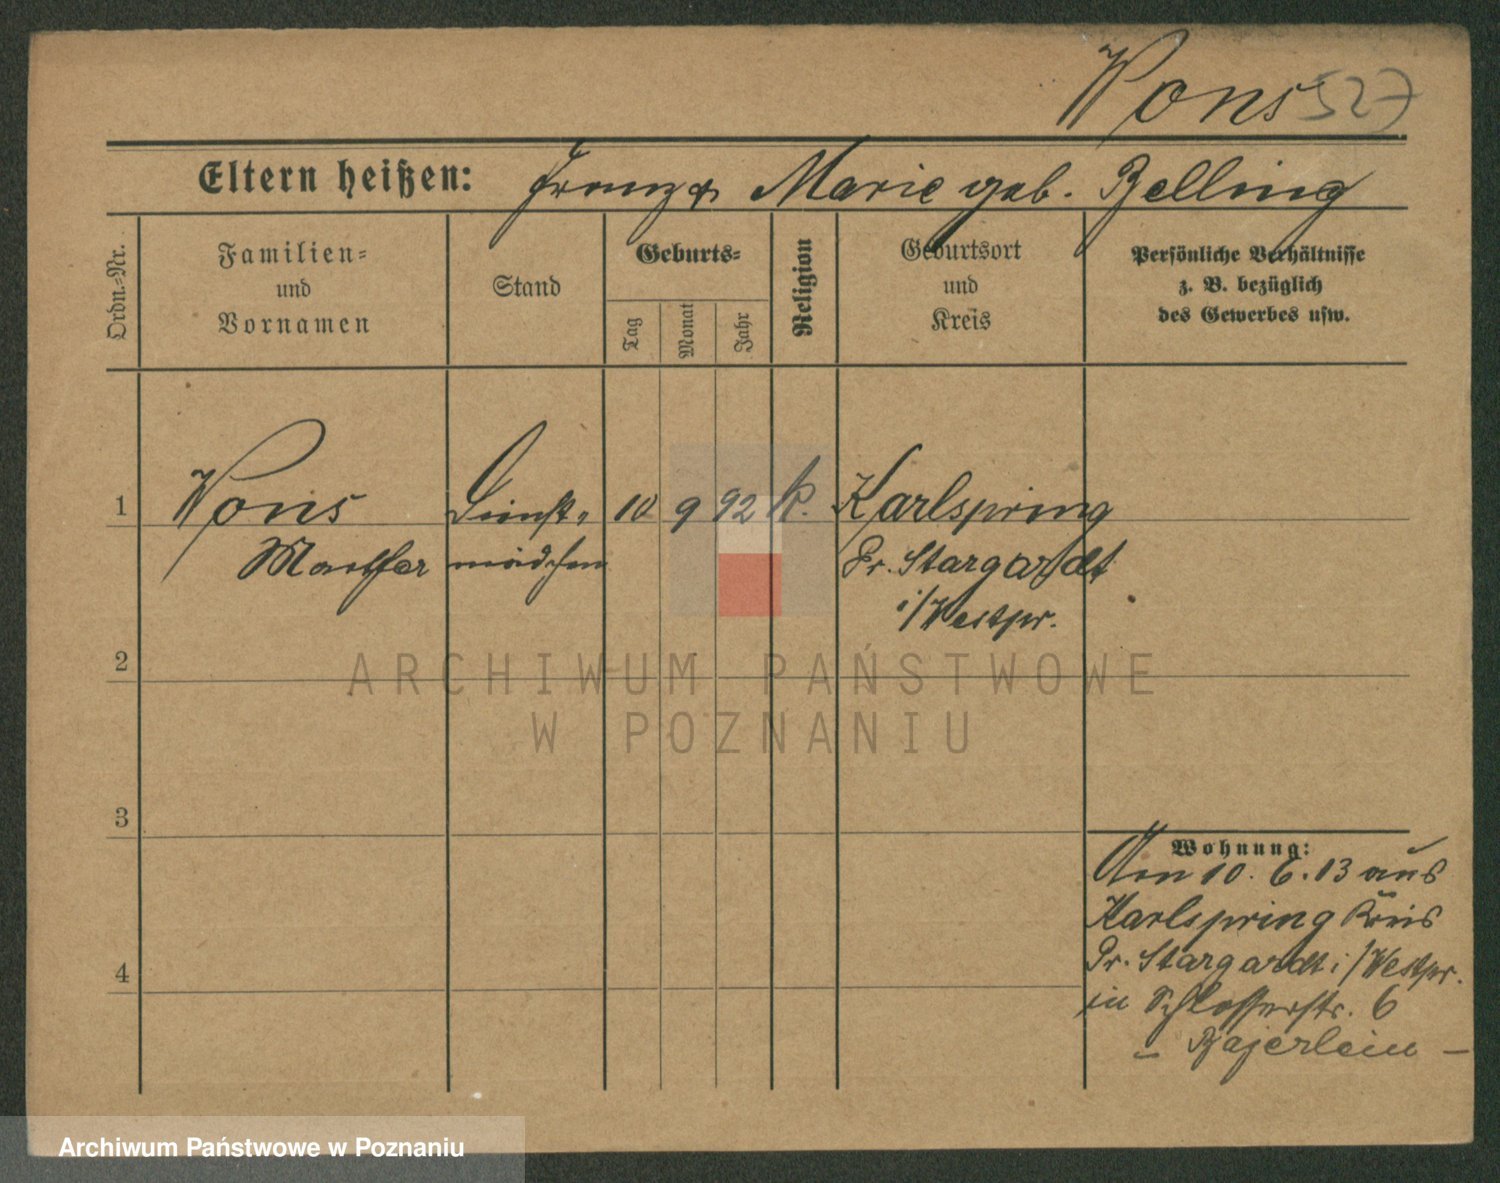 Wons 527
Eltern heißen: Franz & Marie geb. Belling
Ordn.-Nr.
Familien-
und
Vornamen
Stand
Geburts-
Tag
Monat
Jahr
Religion
Geburtsort
und
Kreis
Persönliche Verhältnisse
z. B. bezüglich
des Gewerbes usw.
1 Wons Dienst- 10 9 92 k. Karlspring
mädchen Pr. Stargardt
i/Westpr.
2
3
4
Wohnung:
Am 10. 6. 13 aus
Karlspring Kreis
Pr. Stargardt i/Westpr.
in Schlosserstr. 6
– Bajerlein –
ARCHIWUM PAŃSTWOWE
W POZNANIU
Archiwum Państwowe w Poznaniu